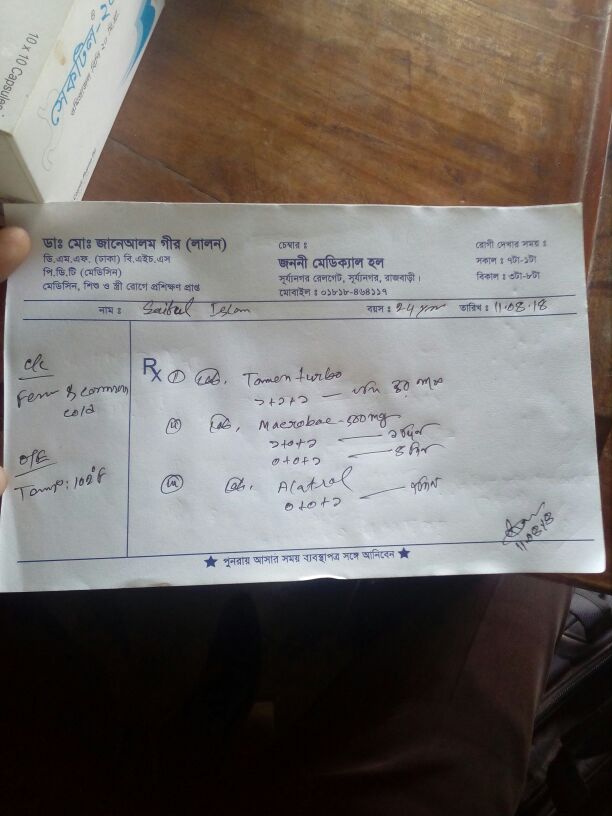 10 x 10 Capsules
সেকটিল-২০
ডাঃ মোঃ জানেআলম গীর (লালন)
ডি.এম.এফ. (ঢাকা) বি.এইচ.এস
পি.ডি.টি (মেডিসিন)
মেডিসিন, শিশু ও স্ত্রী রোগে প্রশিক্ষণ প্রাপ্ত
চেম্বার ঃ
জননী মেডিক্যাল হল
সূর্যনগর রেলগেট, সূর্যনগর, রাজবাড়ী।
মোবাইল ঃ ০১৮১৮-৪৬৪১১৭
রোগী দেখার সময় ঃ
সকাল ঃ ৭টা-১টা
বিকাল ঃ ৩টা-৮টা
নাম ঃ Saiful Islam বয়স ঃ 24 yrs তারিখ ঃ 11.08.18
C/C
Fever & common
cold
O/E
Temp: 102°F
Rx
(i) Tab. Tamen turbo
১+১+১ —
(ii) Tab. Macrobac-500mg
১+০+১ — ১ দিন
০+০+১ — ৪ দিন
(iii) Tab. Alatrol
০+০+১ —
11.08.18
★ পুনরায় আসার সময় ব্যবস্থাপত্র সঙ্গে আনিবেন ★